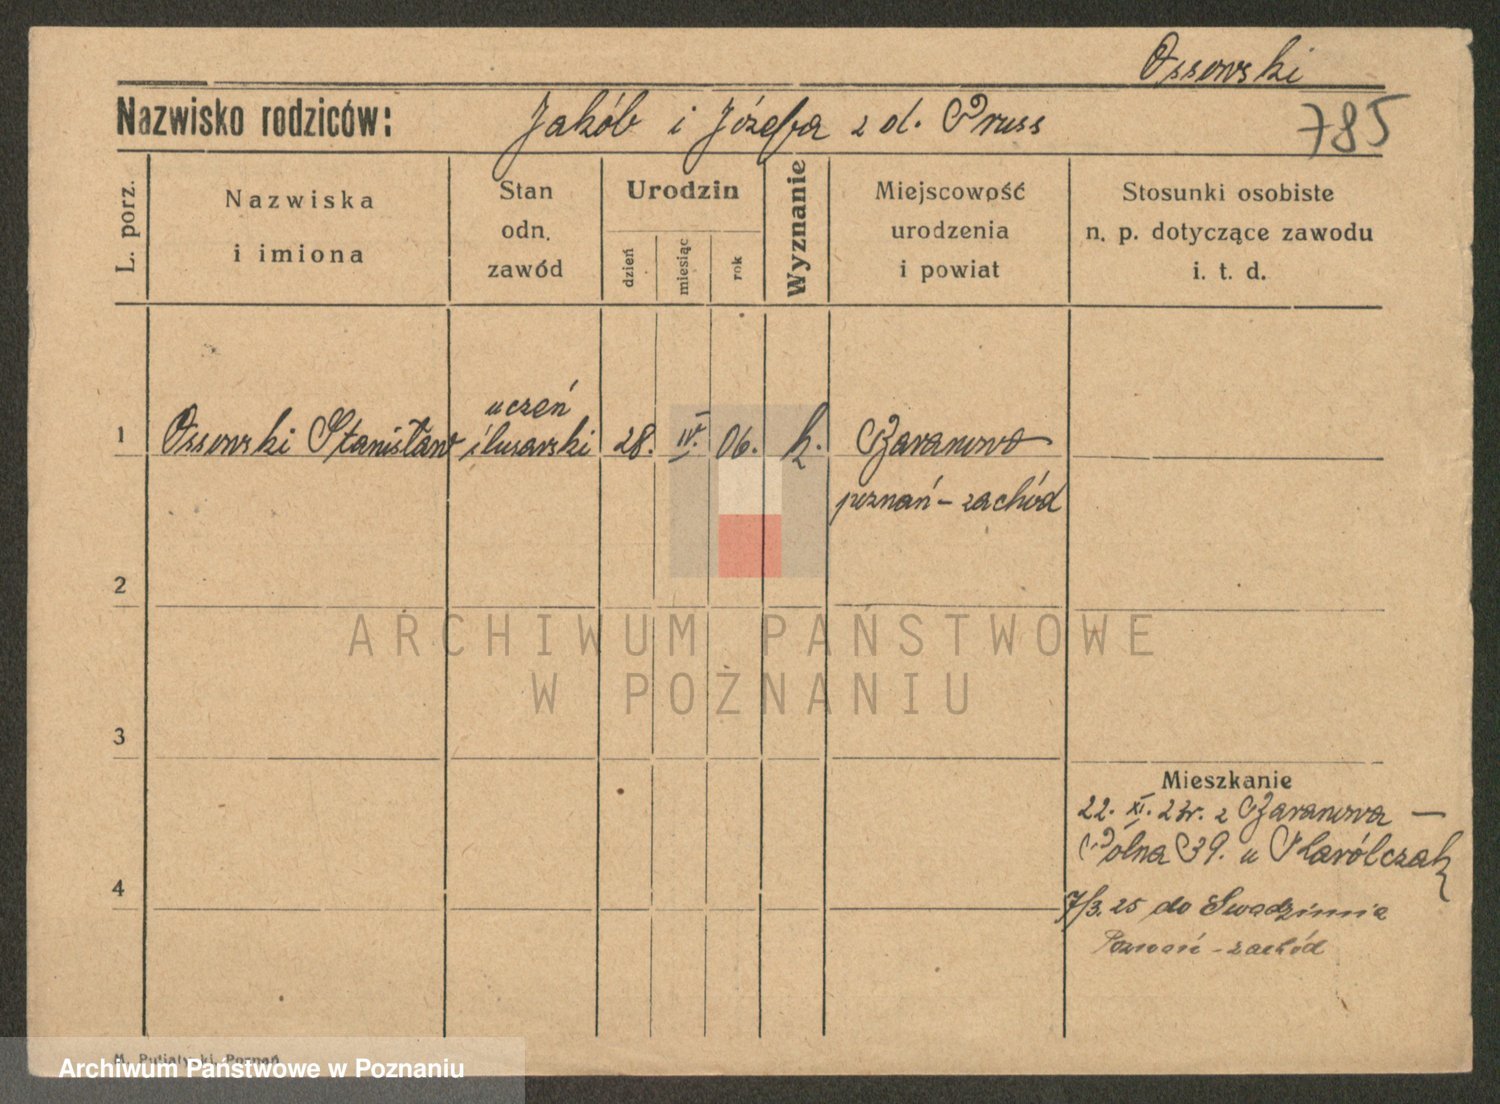 Ossowski
Nazwisko rodziców: Jakób i Józefa z d. Pruss
785
L. porz.
Nazwiska
i imiona
Stan
odn.
zawód
Urodzin
dzień
miesiąc
rok
Wyznanie
Miejscowość
urodzenia
i powiat
Stosunki osobiste
n. p. dotyczące zawodu
i. t. d.
1
Ossowski Stanisław
uczeń
ślusarski
28. IV. 06. k.
Baranowo
poznań - zachód
2
3
4
Mieszkanie
22. XI. 23r. z Baranowa —
Polna 39. u Karólczak
7/3. 25 do Swadzimia
Poznań - zachód
ARCHIWUM PAŃSTWOWE
W POZNANIU
Poznań
Archiwum Państwowe w Poznaniu